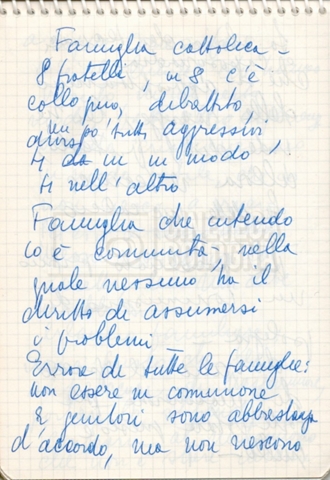 Famiglia cattolica -
8 fratelli, in 8 c'è
colloquio, dibattito,
un po' tutti aggressivi
divisi
4 da in un modo,
4 nell'altro
Famiglia che intendo
io è comunità, nella
quale nessuno ha il
diritto di assumersi
i problemi
Errore di tutte le famiglie:
non essere in comunione
I genitori sono abbastanza
d'accordo, ma non riescono